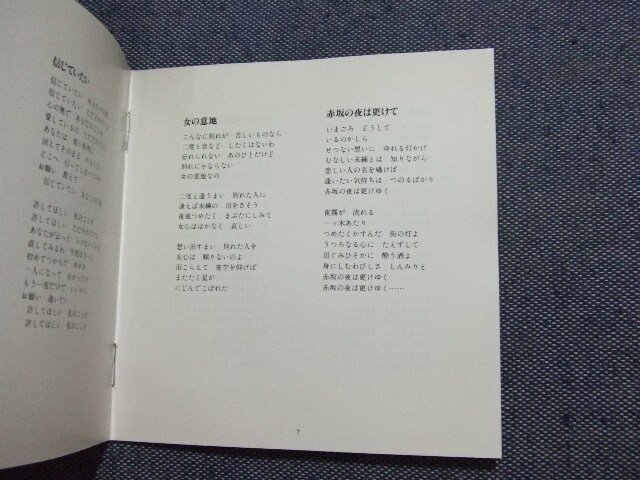 信じていたい
信じていたい
信じていたい
愛しているの
あなたは
消えてそのまま
どこへ
お願い 教えて
信じていたい
許してほしい 私のことを
許してほしい
あなたが
直してみるわ
初めてつかんだ 幸せを
一人になって
もう一度だけで いいから
お願い 逢いたい
許してほしい 私のことを
許してほしい 私のことを
女の意地
こんなに別れが 苦しいものなら
二度と恋など したくはないわ
忘れられない あのひとだけど
別れにゃならない
女の意地なの
二度と逢うまい 別れた人に
逢えば未練の 泪をさそう
夜風つめたく まぶたにしみて
女心ははかなく 哀しい
想い出すまい 別れた人を
女心は 頼りないのよ
泪こらえて 夜空を仰げば
またたく星が
にじんでこぼれた
赤坂の夜は更けて
いまごろ どうして
いるのかしら
せつない想いに ゆれる灯かげ
むなしい未練とは 知りながら
恋しい人の名を 囁けば
逢いたい気持ちは つのるばかり
赤坂の夜は更けゆく
夜霧が 流れる
一ッ木あたり
つめたくかすんだ 街の灯よ
うつろなる心に たえずして
泪ぐみひそかに 酔う酒よ
身にしむわびしさ しんみりと
赤坂の夜は更けゆく
赤坂の夜は更けゆく……
7